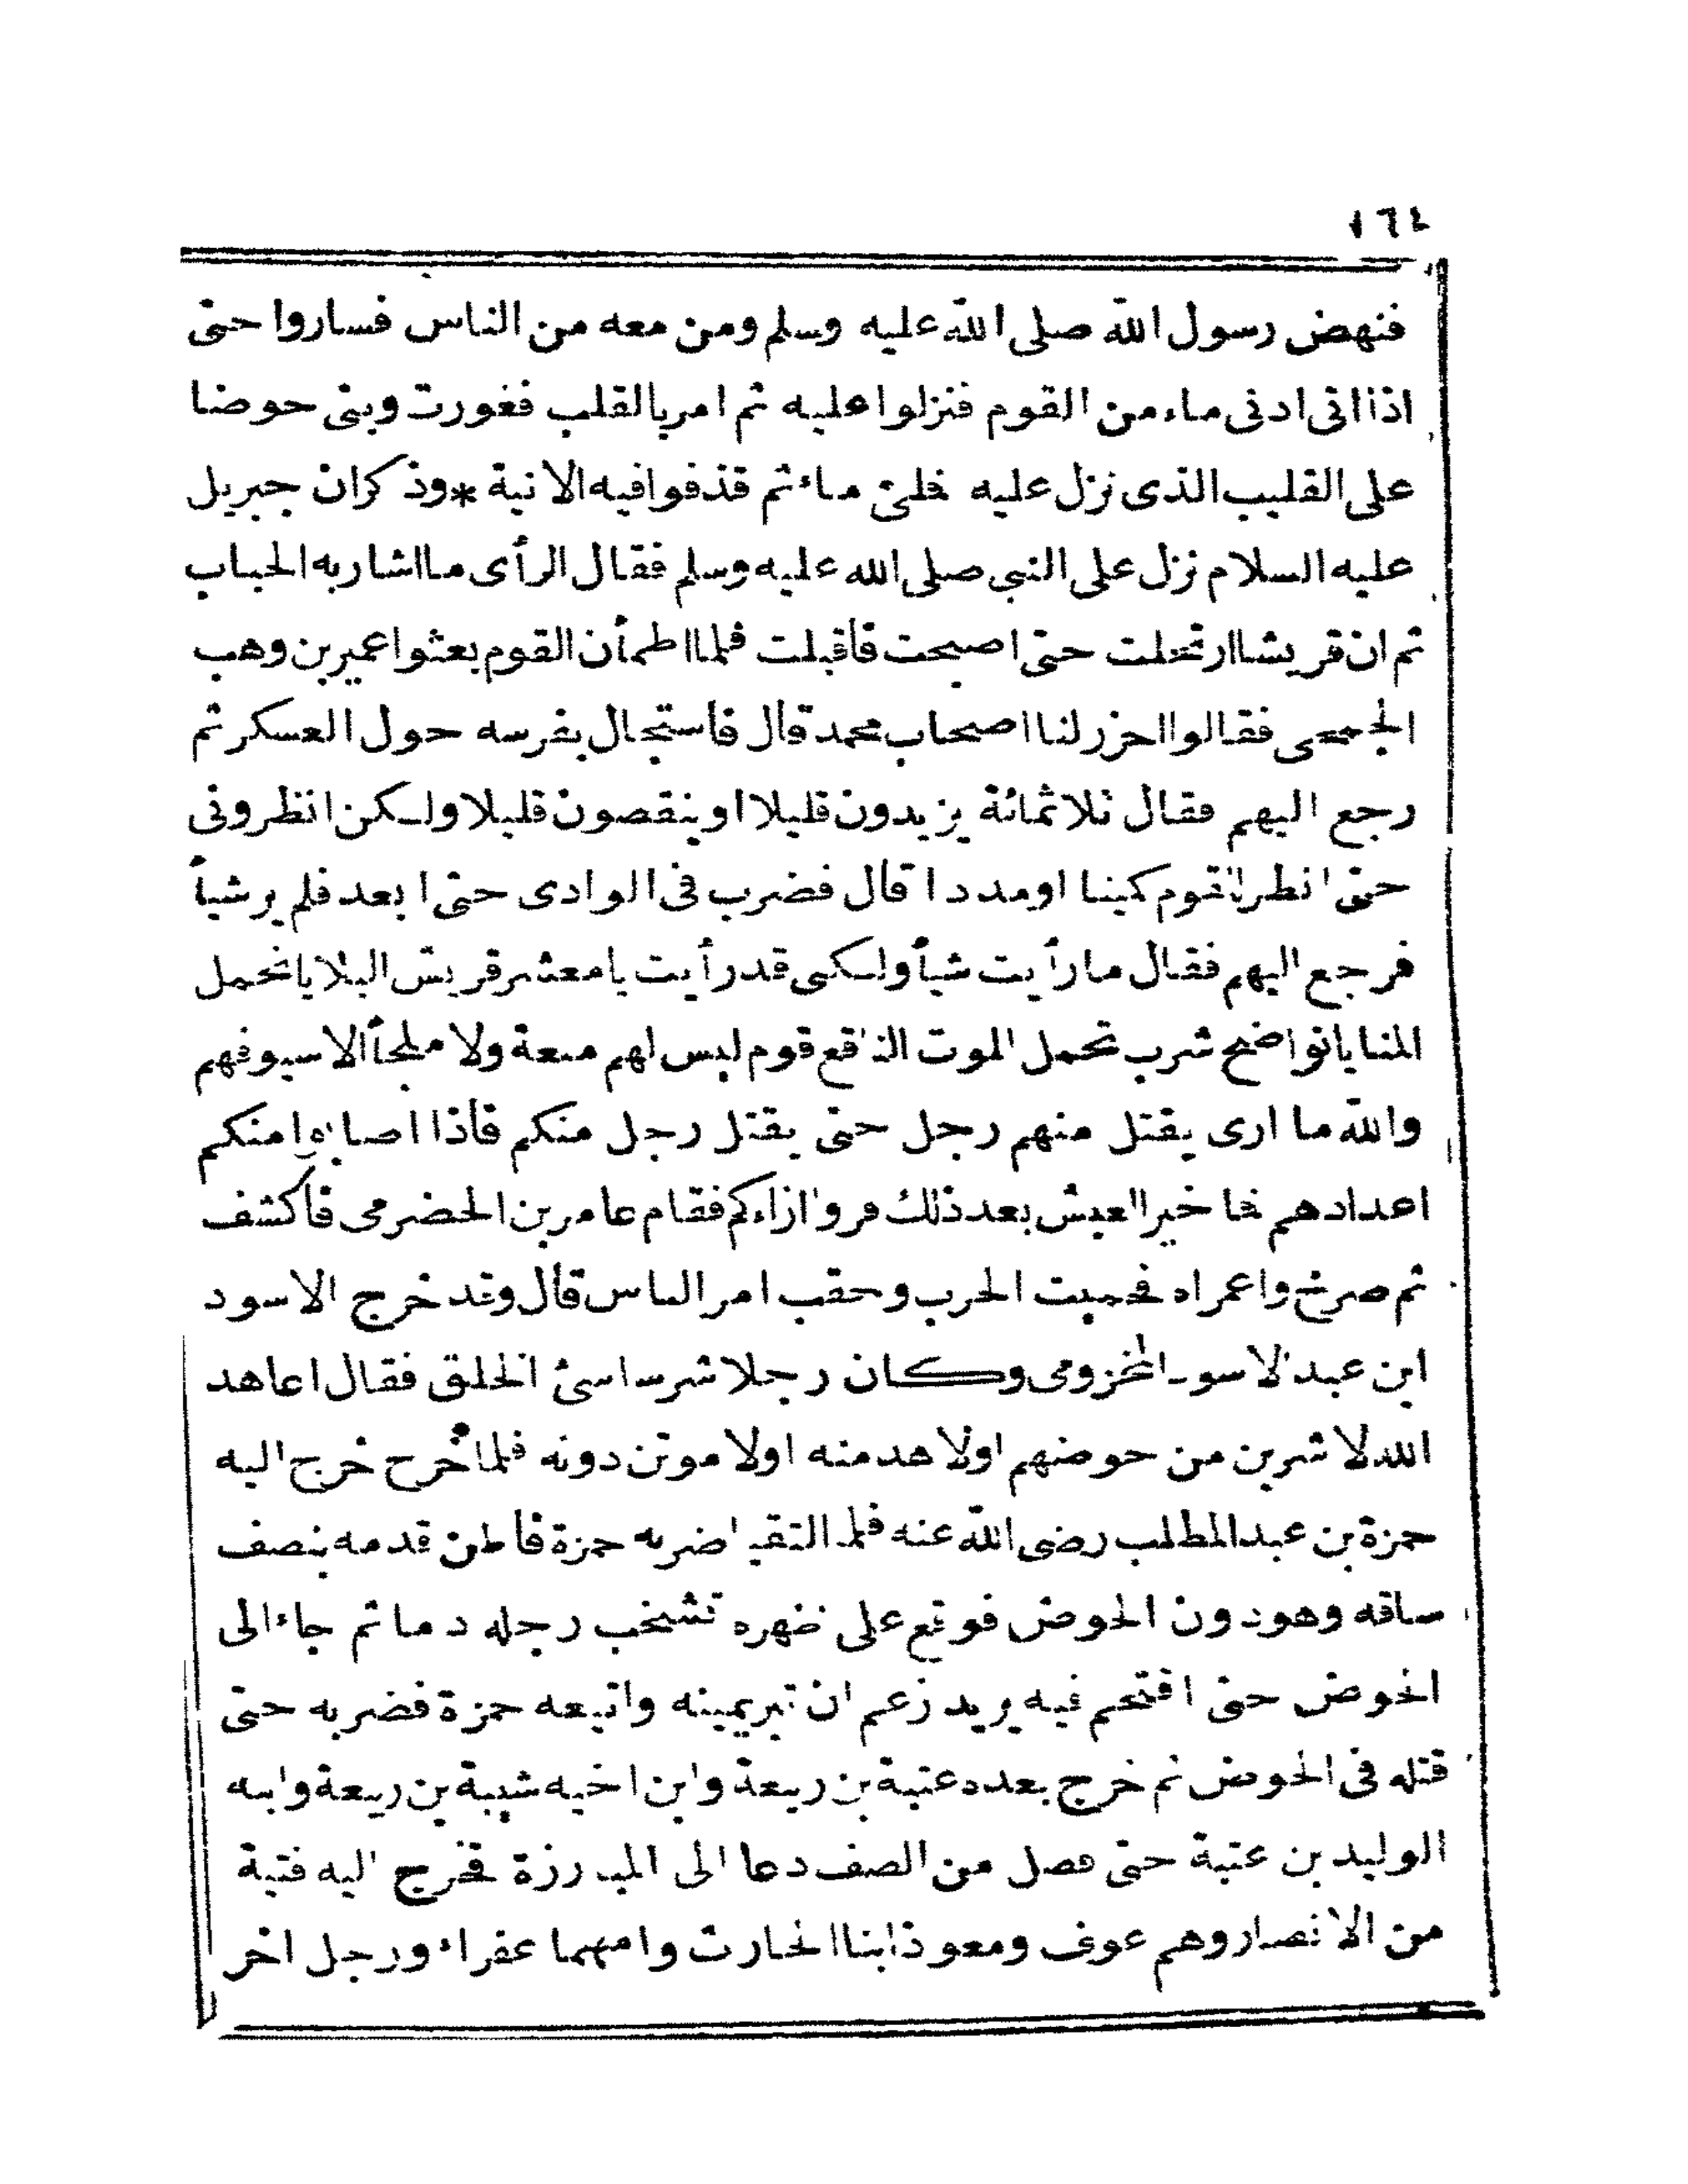 ١٦٤
فنهض رسول الله صلى الله عليه وسلم ومن معه من الناس فساروا حتى
اذا اتى ادنى ماء من القوم فنزلوا عليه ثم امر بالقلب فغورت وبنى حوضا
على القليب الذى نزل عليه فلئ ماء ثم قذفوا فيه الانية * وذكر ان جبريل
عليه السلام نزل على النبى صلى الله عليه وسلم فقال الرأى ما اشار به الحباب
ثم ان قريشا ارتحلت حتى اصبحت فأقبلت فلما اطمأن القوم بعثوا عمير بن وهب
الجمحى فقالوا احزر لنا اصحاب محمد قال فأستجال بفرسه حول العسكر ثم
رجع اليهم فقال ثلاثمائة يزيدون قليلا او ينقصون قليلا ولكن انظرونى
حتى انظر للقوم كمينا او مددا قال فضرب فى الوادى حتى ابعد فلم ير شيأ
فرجع اليهم فقال ما رأيت شيأ ولكنى قد رأيت يا معشر قريش البلايا تحمل
المنايا نواضح شرب تحمل الموت الناقع قوم ليس لهم منعة ولا ملجأ الا سيوفهم
والله ما ارى يقتل منهم رجل حتى يقتل رجل منكم فأذا اصابوا منكم
اعدادهم فما خير العيش بعد ذلك فروا ازاءكم فقام عامر بن الحضرمى فأكشف
ثم صرخ واعمراه فحميت الحرب وحقب امر الناس قال وقد خرج الاسود
ابن عبد الاسود المخزومى وكان رجلا شرسا سئ الخلق فقال اعاهد
الله لا شربن من حوضهم اولا هدمنه اولا موتن دونه فلما خرج خرج اليه
حمزة بن عبد المطلب رضى الله عنه فلما التقيا ضربه حمزة فأطن قدمه بنصف
ساقه وهو دون الحوض فوقع على ظهره تشخب رجله دما ثم جاء الى
الحوض حتى اقتحم فيه يريد زعم ان تبر يمينه واتبعه حمزة فضربه حتى
قتله فى الحوض ثم خرج بعده عتبة بن ربيعة وابن اخيه شيبة بن ربيعة وابنه
الوليد بن عتبة حتى فصل من الصف دعا الى المبارزة فخرج اليه فتية
من الانصار وهم عوف ومعوذ ابنا الحارث وامهما عفراء ورجل اخر